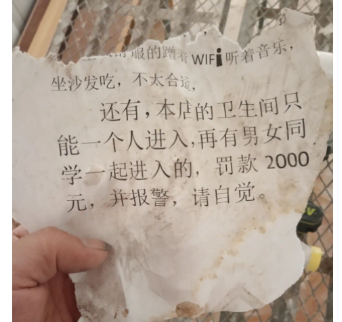 服的蹭着WIFi听着音乐，
坐沙发吃，不太合适，
还有，本店的卫生间只
能一个人进入，再有男女同
学一起进入的，罚款2000
元，并报警，请自觉。